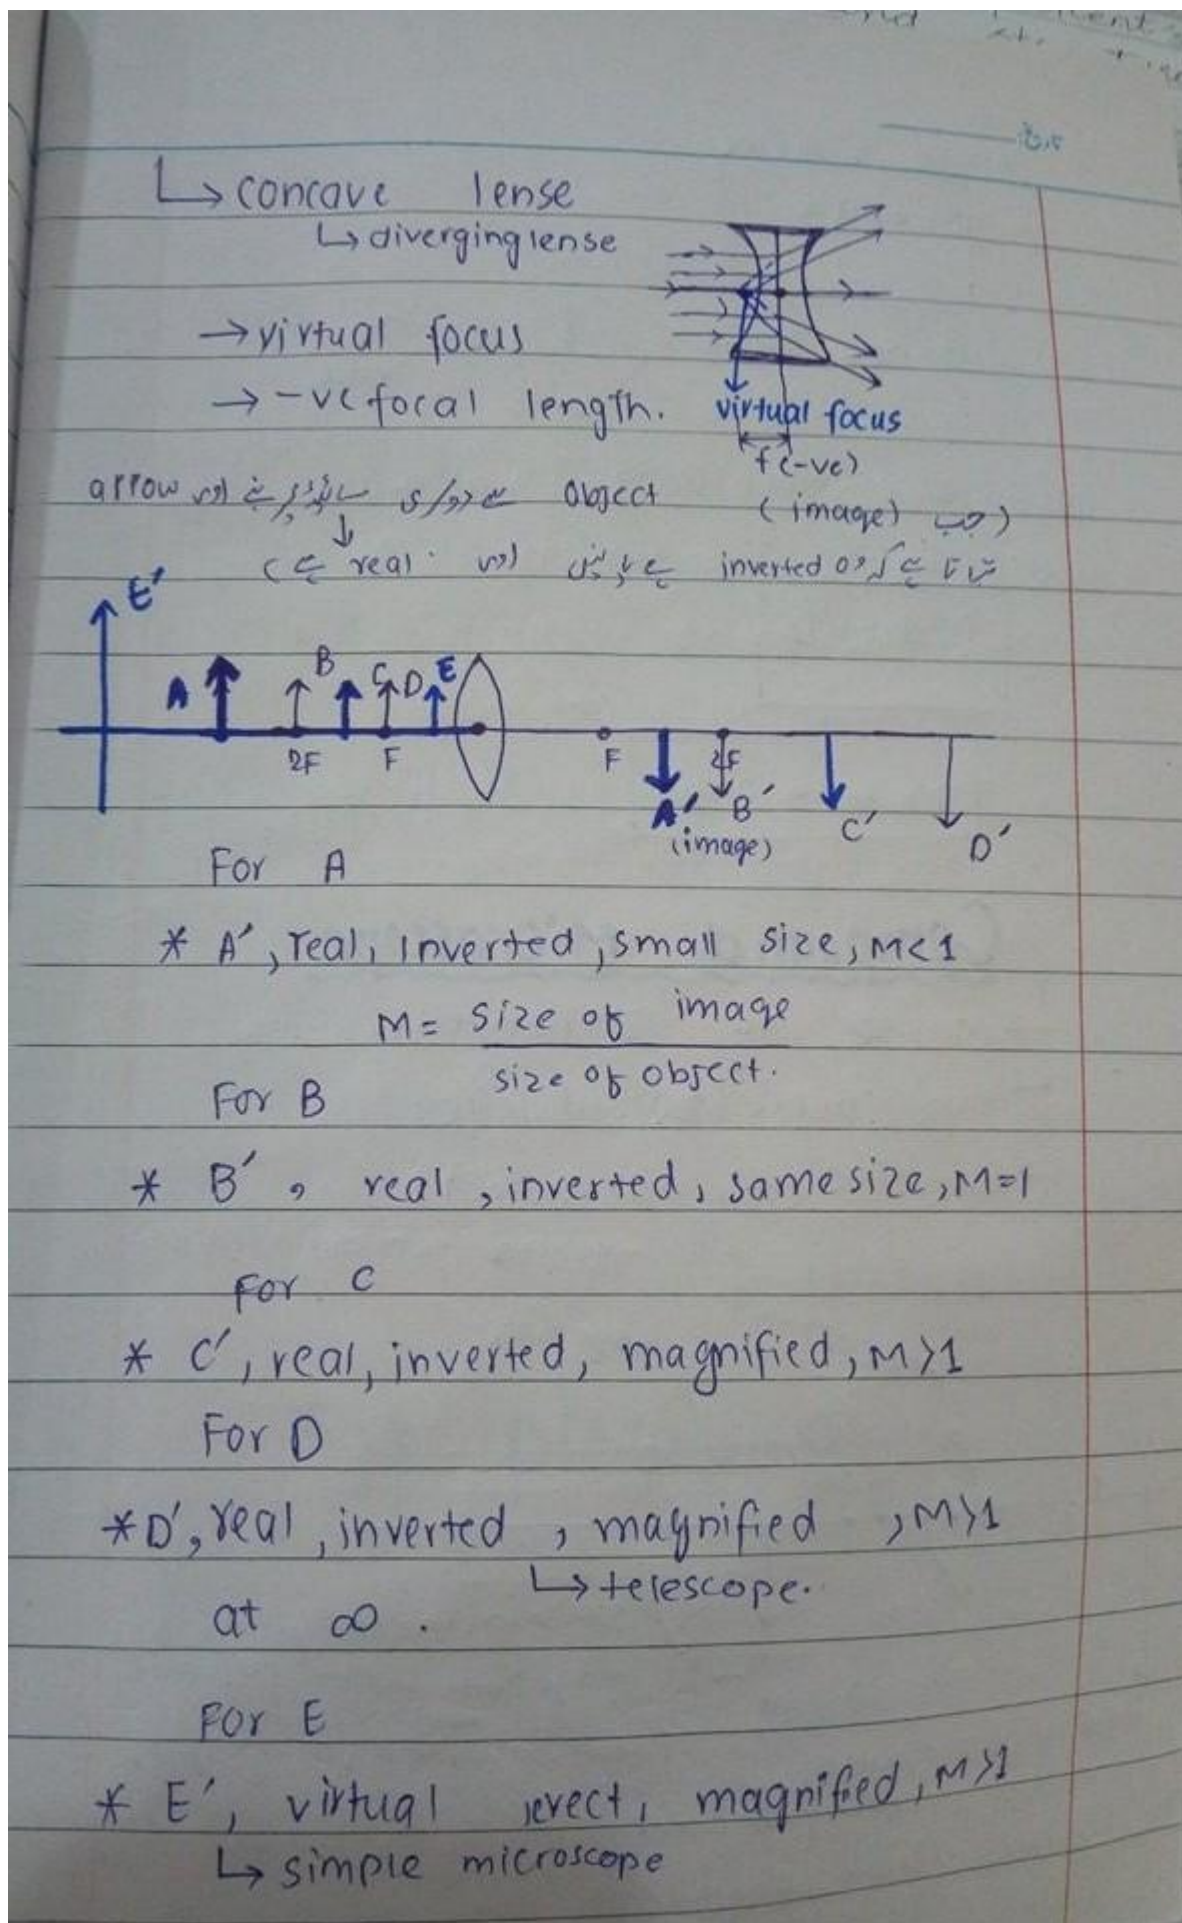 ↳ concave lense
↳ diverging lense
→ virtual focus
→ -ve focal length.
virtual focus
f(-ve)
(جب (image) object سے دوسری سائیڈ پر بنے اور arrow
↓
inverted ہے اور real ہے)
E′
A
B
C
D
E
2F
F
F
2F
A′
(image)
B′
C′
D′
For A
* A′, real, inverted, small size, M<1
M = size of image
size of object.
For B
* B′, real, inverted, same size, M=1
For C
* C′, real, inverted, magnified, M>1
For D
* D′, real, inverted, magnified, M>1
↳ telescope.
at ∞.
For E
* E′, virtual erect, magnified, M>1
↳ simple microscope